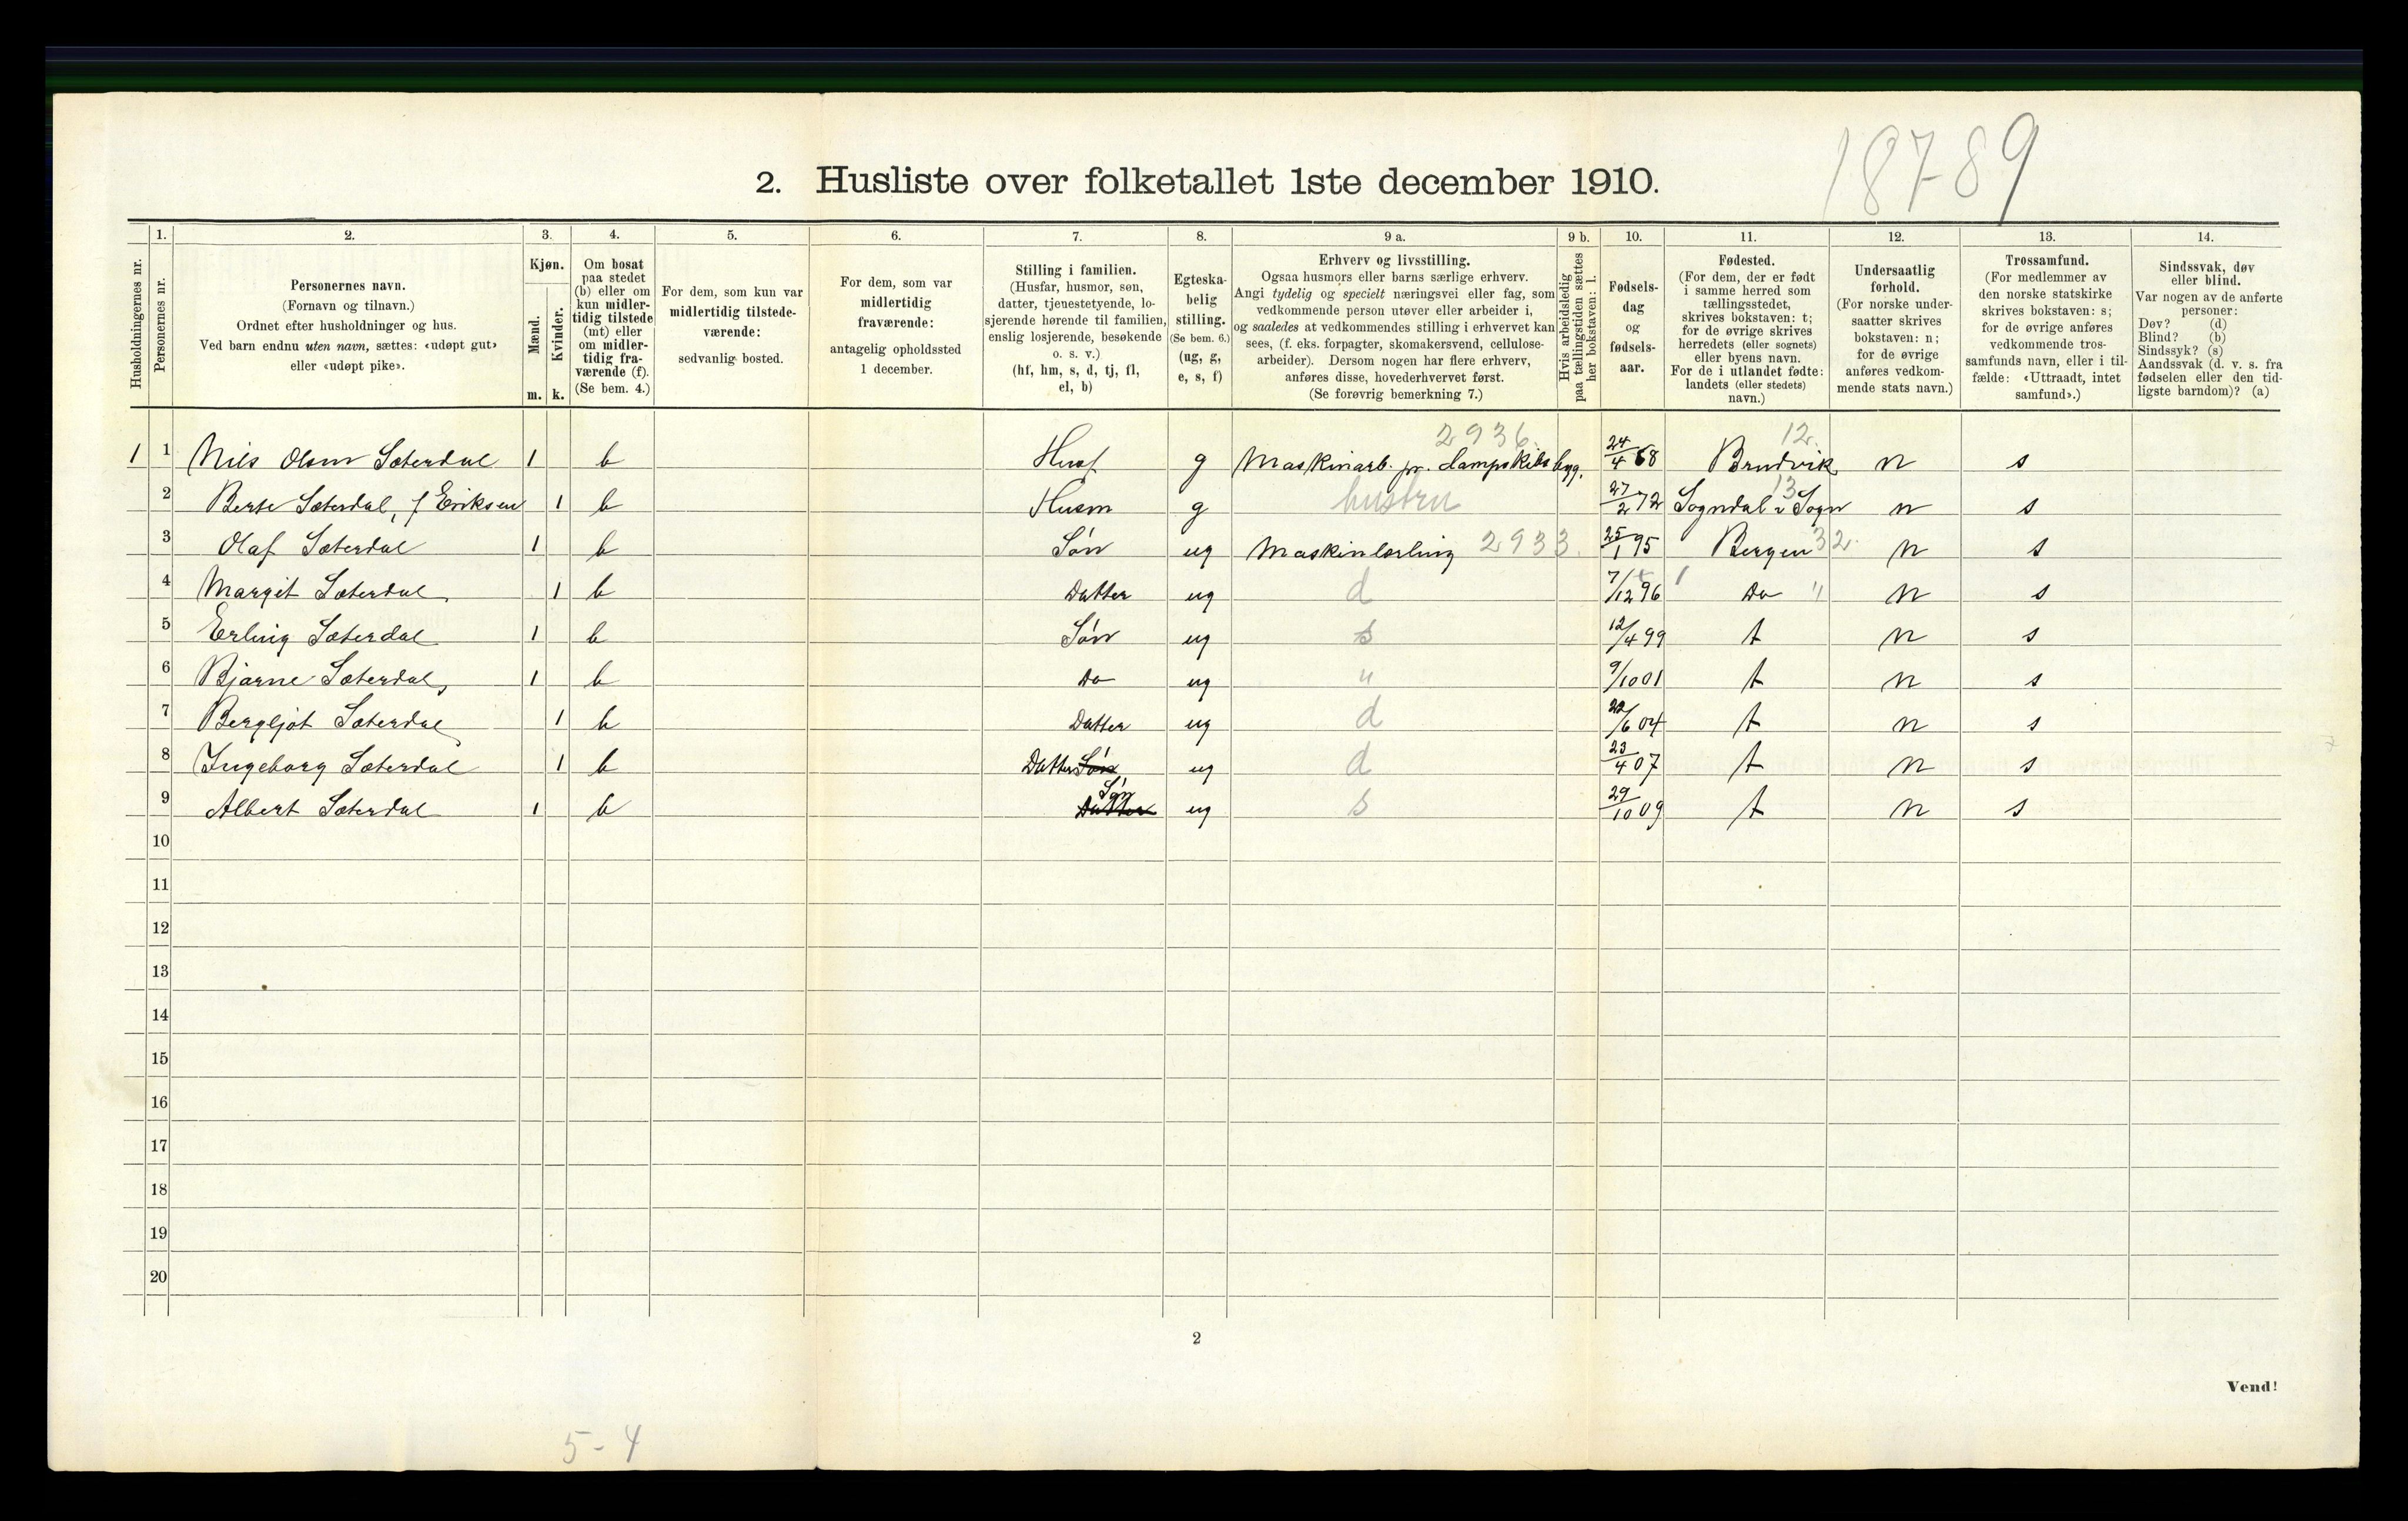 18789
2. Husliste over folketallet 1ste december 1910.
Husholdningernes nr.
1.
Personernes nr.
2.
Personernes navn.
(Fornavn og tilnavn.)
Ordnet efter husholdninger og hus.
Ved barn endnu uten navn, sættes: «udøpt gut»
eller «udøpt pike».
3.
Kjøn.
Mænd.
Kvinder.
m.
k.
4.
Om bosat
paa stedet
(b) eller om
kun midler-
tidig tilstede
(mt) eller
om midler-
tidig fra-
værende (f).
(Se bem. 4.)
5.
For dem, som kun var
midlertidig tilstede-
værende:
sedvanlig bosted.
6.
For dem, som var
midlertidig
fraværende:
antagelig opholdssted
1 december.
7.
Stilling i familien.
(Husfar, husmor, søn,
datter, tjenestetyende, lo-
sjerende hørende til familien,
enslig losjerende, besøkende
o. s. v.)
(hf, hm, s, d, tj, fl,
el, b)
8.
Egteska-
belig
stilling.
(Se bem. 6.)
(ug, g,
e, s, f)
9 a.
Erhverv og livsstilling.
Ogsaa husmors eller barns særlige erhverv.
Angi tydelig og specielt næringsvei eller fag, som
vedkommende person utøver eller arbeider i,
og saaledes at vedkommendes stilling i erhvervet kan
sees, (f. eks. forpagter, skomakersvend, cellulose-
arbeider). Dersom nogen har flere erhverv,
anføres disse, hovederhvervet først.
(Se forøvrig bemerkning 7.)
9 b.
Hvis arbeidsledig
paa tællingstiden sættes
her bokstaven: l.
10.
Fødsels-
dag
og
fødsels-
aar.
11.
Fødested.
(For dem, der er født
i samme herred som
tællingsstedet,
skrives bokstaven: t;
for de øvrige skrives
herredets (eller sognets)
eller byens navn.
For de i utlandet fødte:
landets (eller stedets)
navn.)
12.
Undersaatlig
forhold.
(For norske under-
saatter skrives
bokstaven: n;
for de øvrige
anføres vedkom-
mende stats navn.)
13.
Trossamfund.
(For medlemmer av
den norske statskirke
skrives bokstaven: s;
for de øvrige anføres
vedkommende tros-
samfunds navn, eller i til-
fælde: «Uttraadt, intet
samfund».)
14.
Sindssvak, døv
eller blind.
Var nogen av de anførte
personer:
Døv? (d)
Blind? (b)
Sindssyk? (s)
Aandssvak (d. v. s. fra
fødselen eller den tid-
ligste barndom)? (a)
2936. 12.
1 1 Nils Olsen Sæterdal 1 b Husf g Maskinarb. pr. dampskibsbyg. 24/4 68 Brudvik n s
2 Berte Sæterdal, f Eriksen 1 b Husm g hustru 27/2 72 Sogndal i Sogn 13 n s
3 Olaf Sæterdal 1 b Søn ug Maskinlærling 2933. 25/1 95 Bergen 32. n s
4 Margit Sæterdal 1 b Datter ug d 7/12 96 Do " n s
5 Erling Sæterdal 1 b Søn ug s 12/4 99 t n s
6 Bjarne Sæterdal 1 b Do ug " 9/10 01 t n s
7 Bergljot Sæterdal 1 b Datter ug d 22/6 04 t n s
8 Ingeborg Sæterdal 1 b Datter Søn ug d 23/4 07 t n s
9 Albert Sæterdal 1 b Søn Datter ug s 29/10 09 t n s
10
11
12
13
14
15
16
17
18
19
20
2
Vend!
5-4